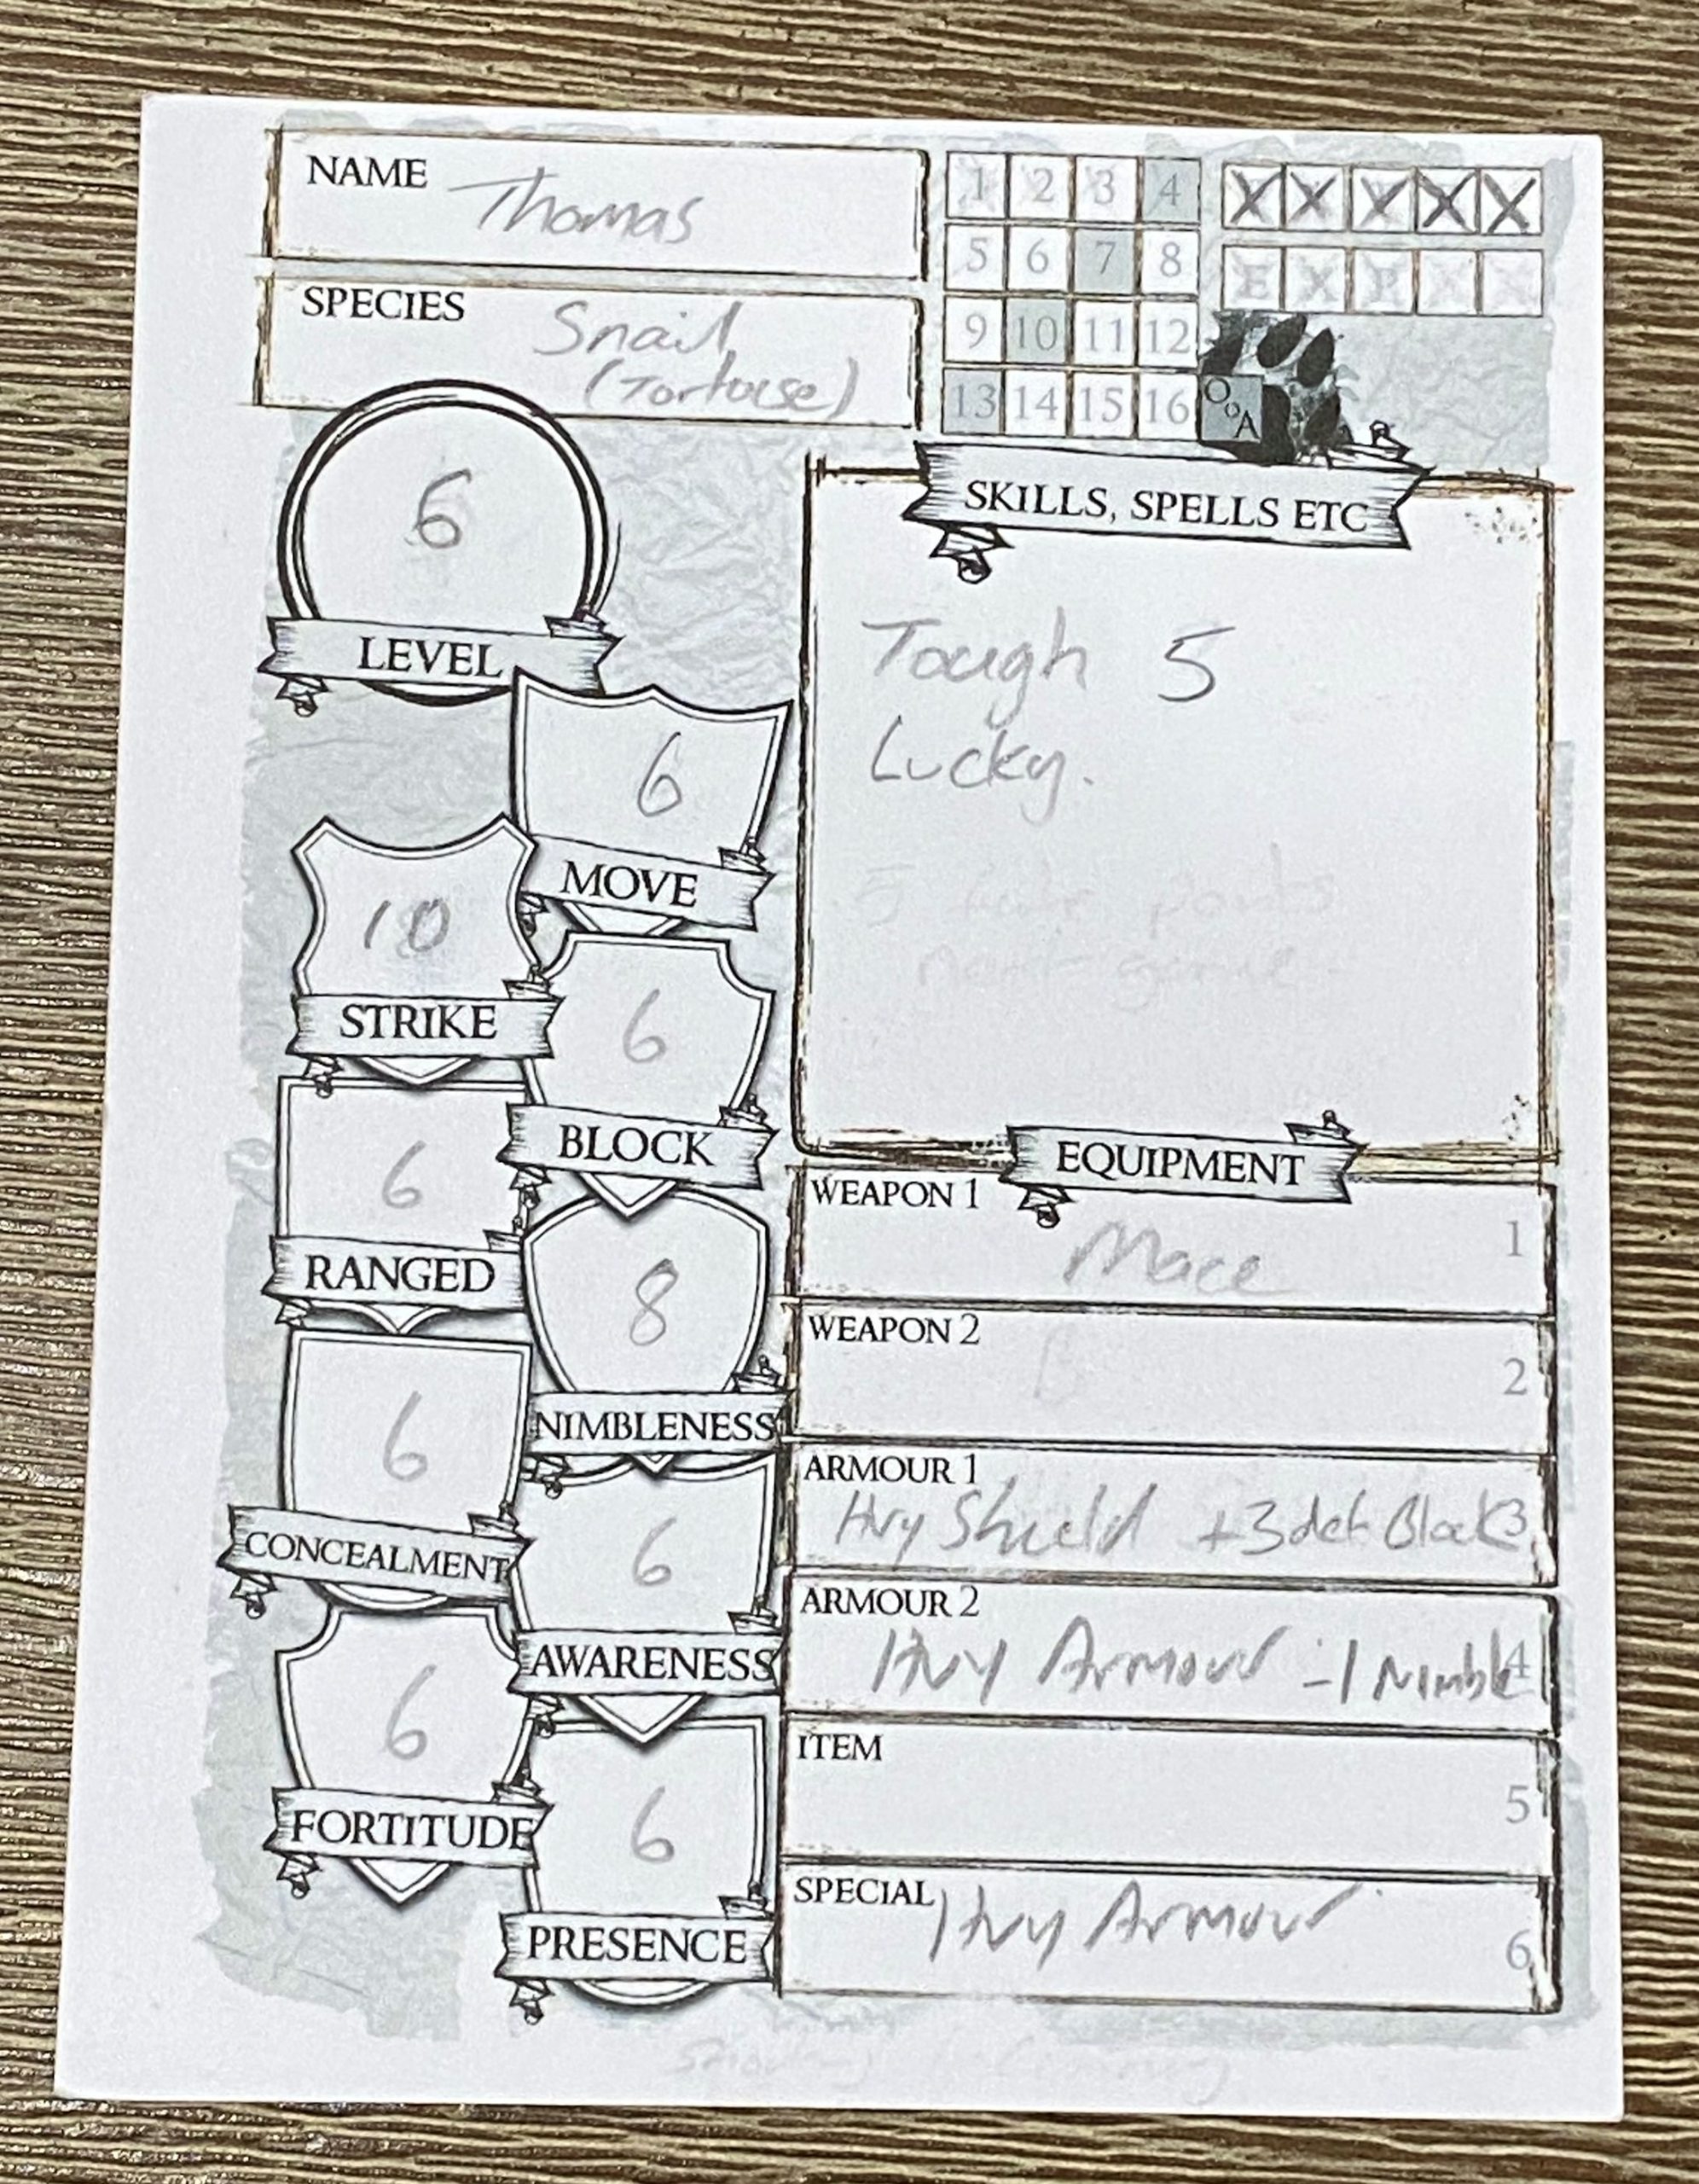 NAME Thomas
1 2 3 4
X X X X X
5 6 7 8
E X P
SPECIES Snail
(Tortoise)
9 10 11 12
13 14 15 16
OoA
6
LEVEL
SKILLS, SPELLS ETC
Tough 5
Lucky.
5
points
next game
6
MOVE
10
STRIKE
6
BLOCK
6
RANGED
8
NIMBLENESS
6
CONCEALMENT
6
AWARENESS
6
FORTITUDE
6
PRESENCE
EQUIPMENT
WEAPON 1 Mace 1
WEAPON 2 2
ARMOUR 1
Hvy Shield +3 def Block 3
ARMOUR 2
Hvy Armour -1 Nimble 4
ITEM 5
SPECIAL Hvy Armour 6